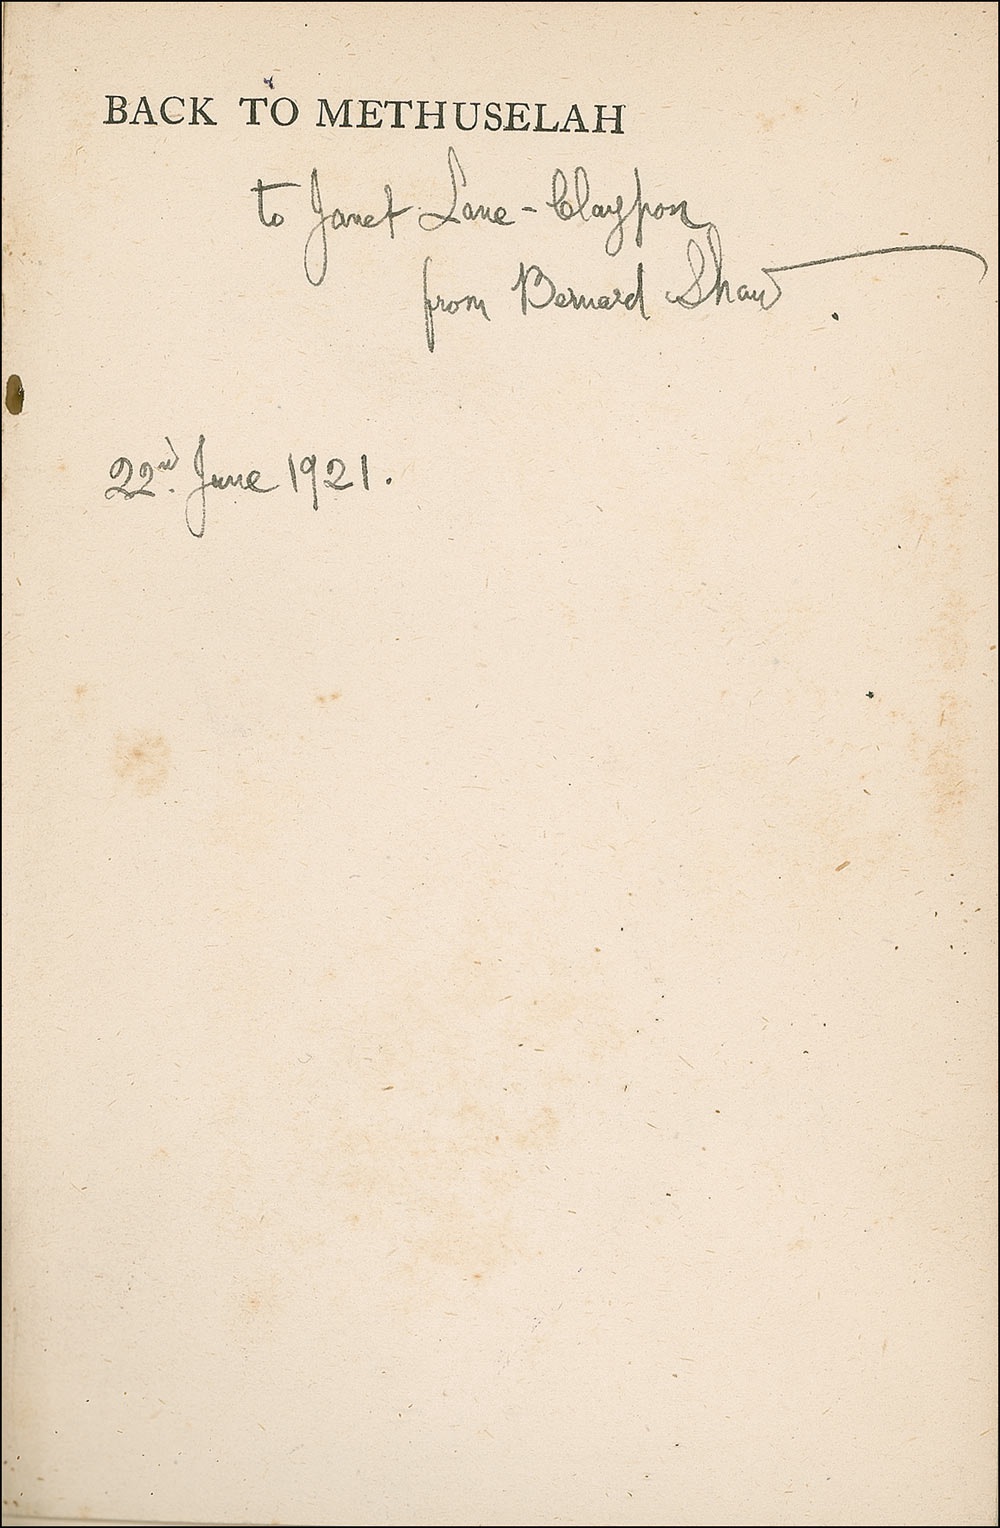 BACK TO METHUSELAH
to Janet Lane-Claypon
from Bernard Shaw
22nd. June 1921.